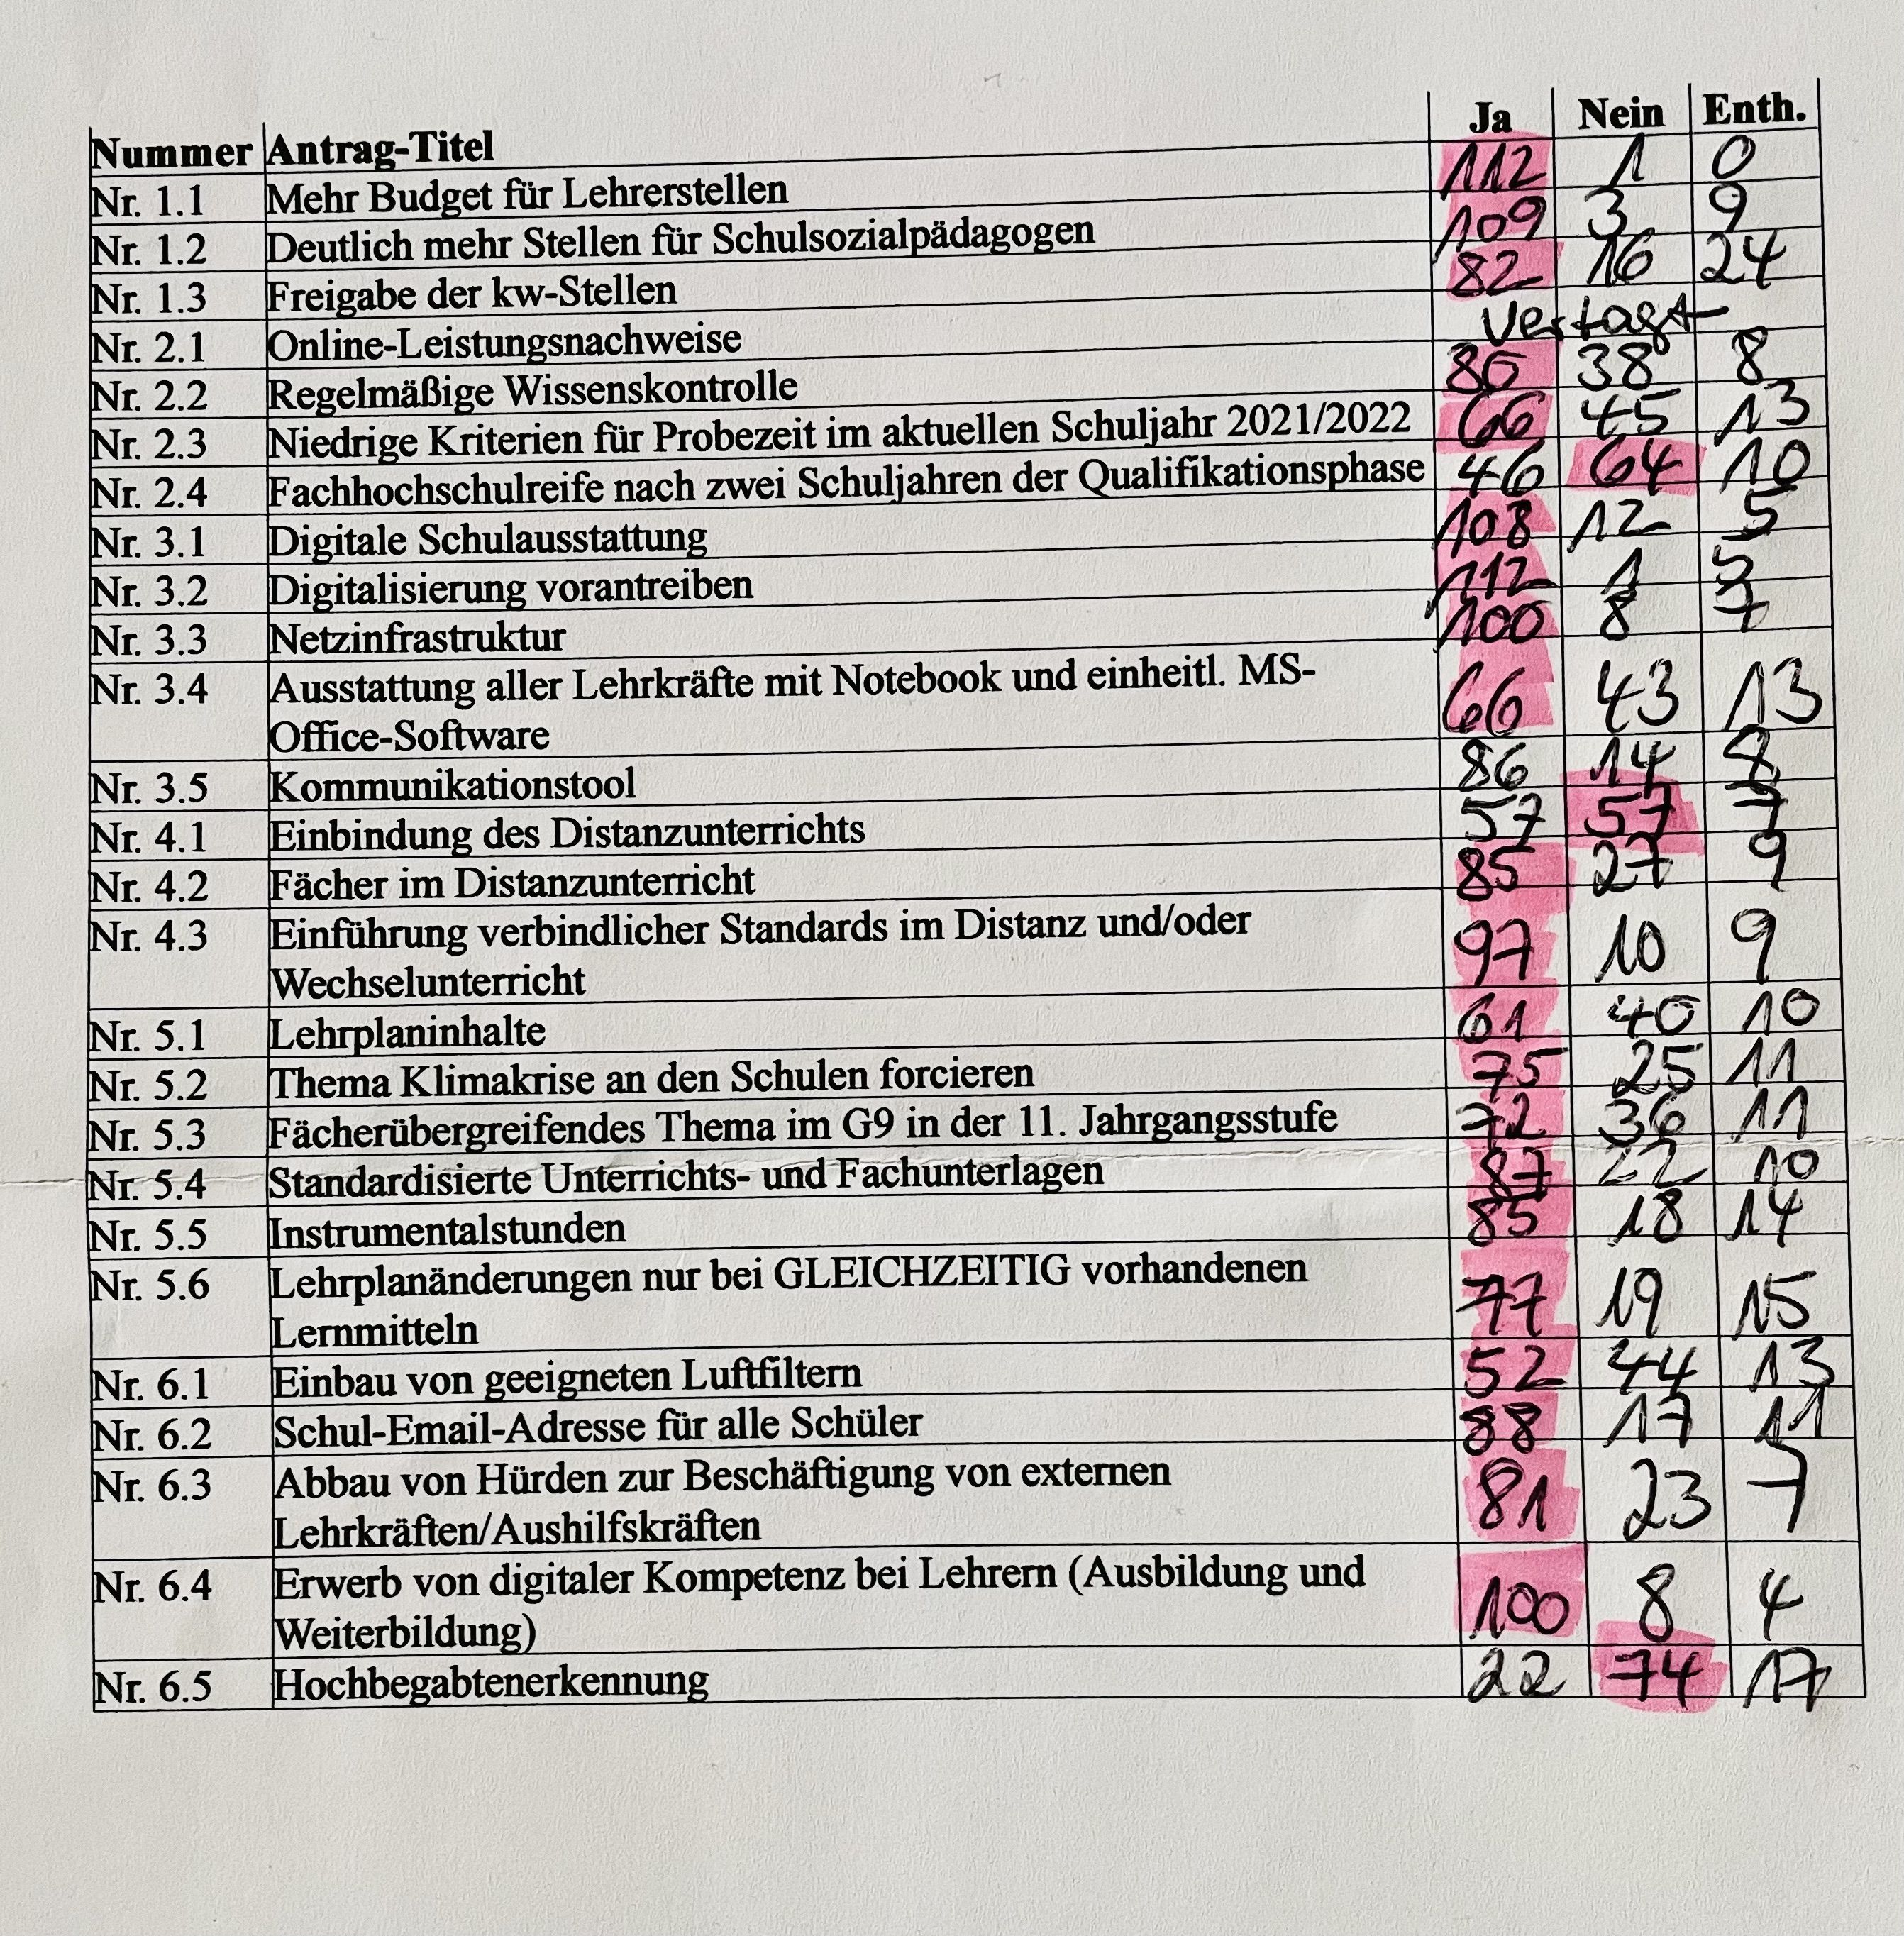 Nummer Antrag-Titel Ja Nein Enth.
Nr. 1.1 Mehr Budget für Lehrerstellen 112 1 0
Nr. 1.2 Deutlich mehr Stellen für Schulsozialpädagogen 109 3 9
Nr. 1.3 Freigabe der kw-Stellen 82 16 24
Nr. 2.1 Online-Leistungsnachweise vertagt
Nr. 2.2 Regelmäßige Wissenskontrolle 38 8
Nr. 2.3 Niedrige Kriterien für Probezeit im aktuellen Schuljahr 2021/2022 66 45 13
Nr. 2.4 Fachhochschulreife nach zwei Schuljahren der Qualifikationsphase 46 64 10
Nr. 3.1 Digitale Schulausstattung 108 12 5
Nr. 3.2 Digitalisierung vorantreiben 112 1 5
Nr. 3.3 Netzinfrastruktur 100 8 7
Nr. 3.4 Ausstattung aller Lehrkräfte mit Notebook und einheitl. MS- 66 43 13
Office-Software
Nr. 3.5 Kommunikationstool 86 14 8
Nr. 4.1 Einbindung des Distanzunterrichts 57 57 7
Nr. 4.2 Fächer im Distanzunterricht 85 27 9
Nr. 4.3 Einführung verbindlicher Standards im Distanz und/oder 97 10 9
Wechselunterricht
Nr. 5.1 Lehrplaninhalte 61 40 10
Nr. 5.2 Thema Klimakrise an den Schulen forcieren 75 25 11
Nr. 5.3 Fächerübergreifendes Thema im G9 in der 11. Jahrgangsstufe 72 36 11
Nr. 5.4 Standardisierte Unterrichts- und Fachunterlagen 87 22 10
Nr. 5.5 Instrumentalstunden 85 18 14
Nr. 5.6 Lehrplanänderungen nur bei GLEICHZEITIG vorhandenen 77 19 15
Lernmitteln
Nr. 6.1 Einbau von geeigneten Luftfiltern 52 44 13
Nr. 6.2 Schul-Email-Adresse für alle Schüler 88 17 11
Nr. 6.3 Abbau von Hürden zur Beschäftigung von externen 81 23 7
Lehrkräften/Aushilfskräften
Nr. 6.4 Erwerb von digitaler Kompetenz bei Lehrern (Ausbildung und 100 8 4
Weiterbildung)
Nr. 6.5 Hochbegabtenerkennung 22 74 17